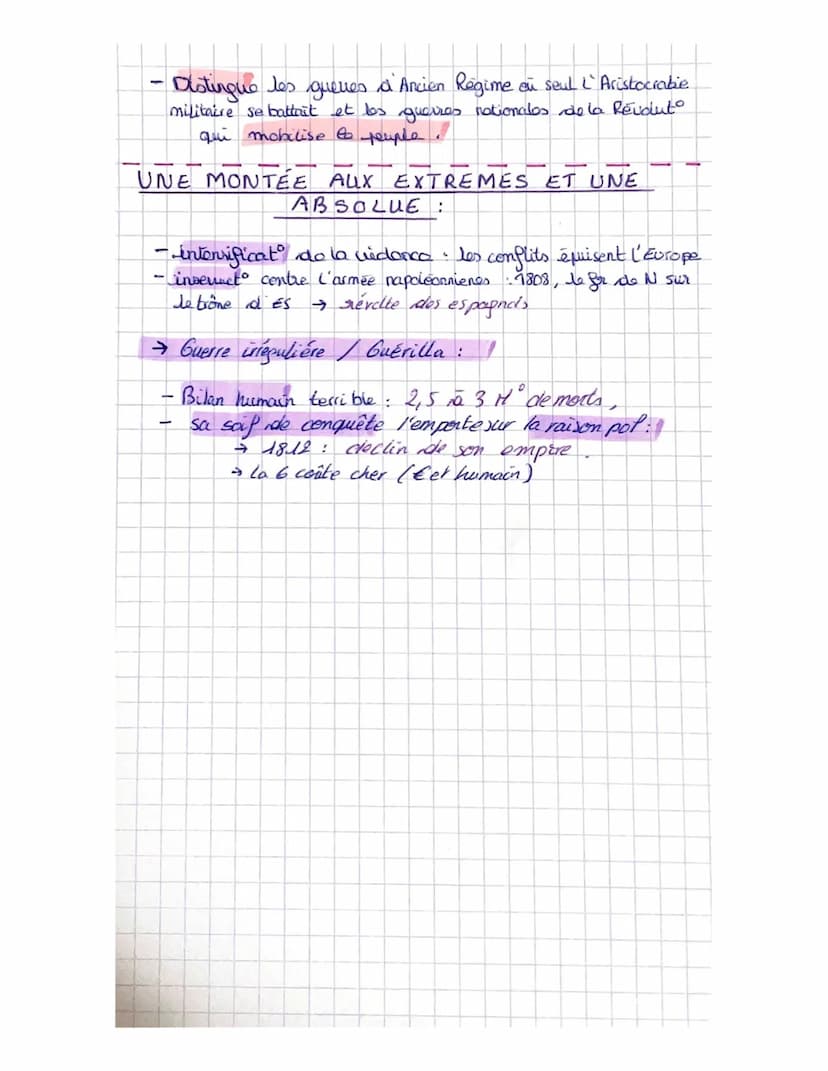 - Distingue les guerres d'Ancien Régime où seul l'Aristocratie
militaire se battait et les guerres nationales de la Révolut°
qui mobilise le peuple.
UNE MONTÉE AUX EXTREMES ET UNE
ABSOLUE :
- intensificat° de la violence : les conflits épuisent l'Europe
- insurrect° contre l'armée napoléonienes : 1808, le fr de N sur
le trône d'ES → révolte des espagnols
→ Guerre irrégulière / Guérilla :
- Bilan humain terrible : 2,5 à 3 M° de morts,
- sa soif de conquête l'emporte sur la raison pol :
→ 1812 : declin de son empire.
→ la G coûte cher (€ et humain)